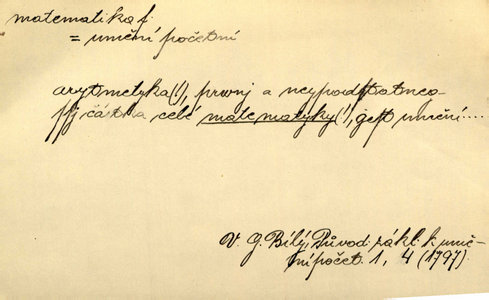 matematika f.
= umění početní
arytmetyka (!), prwnj a neypodstatněg-
ssj částka celé matematyky (!), gest umění....
V. G. Bílý, Původ. zákl. k umě-
ní počet. 1, 4 (1797).